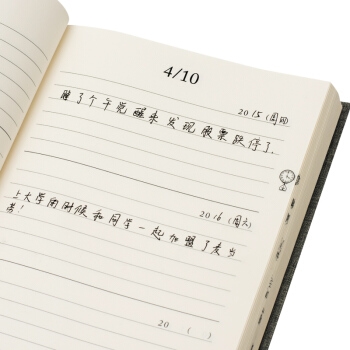 4/10
2015(周四)
睡了个午觉醒来发现股票跌停了.
2016(周六)
上大学的时候和同学一起加盟了麦当
劳!
20 ( )